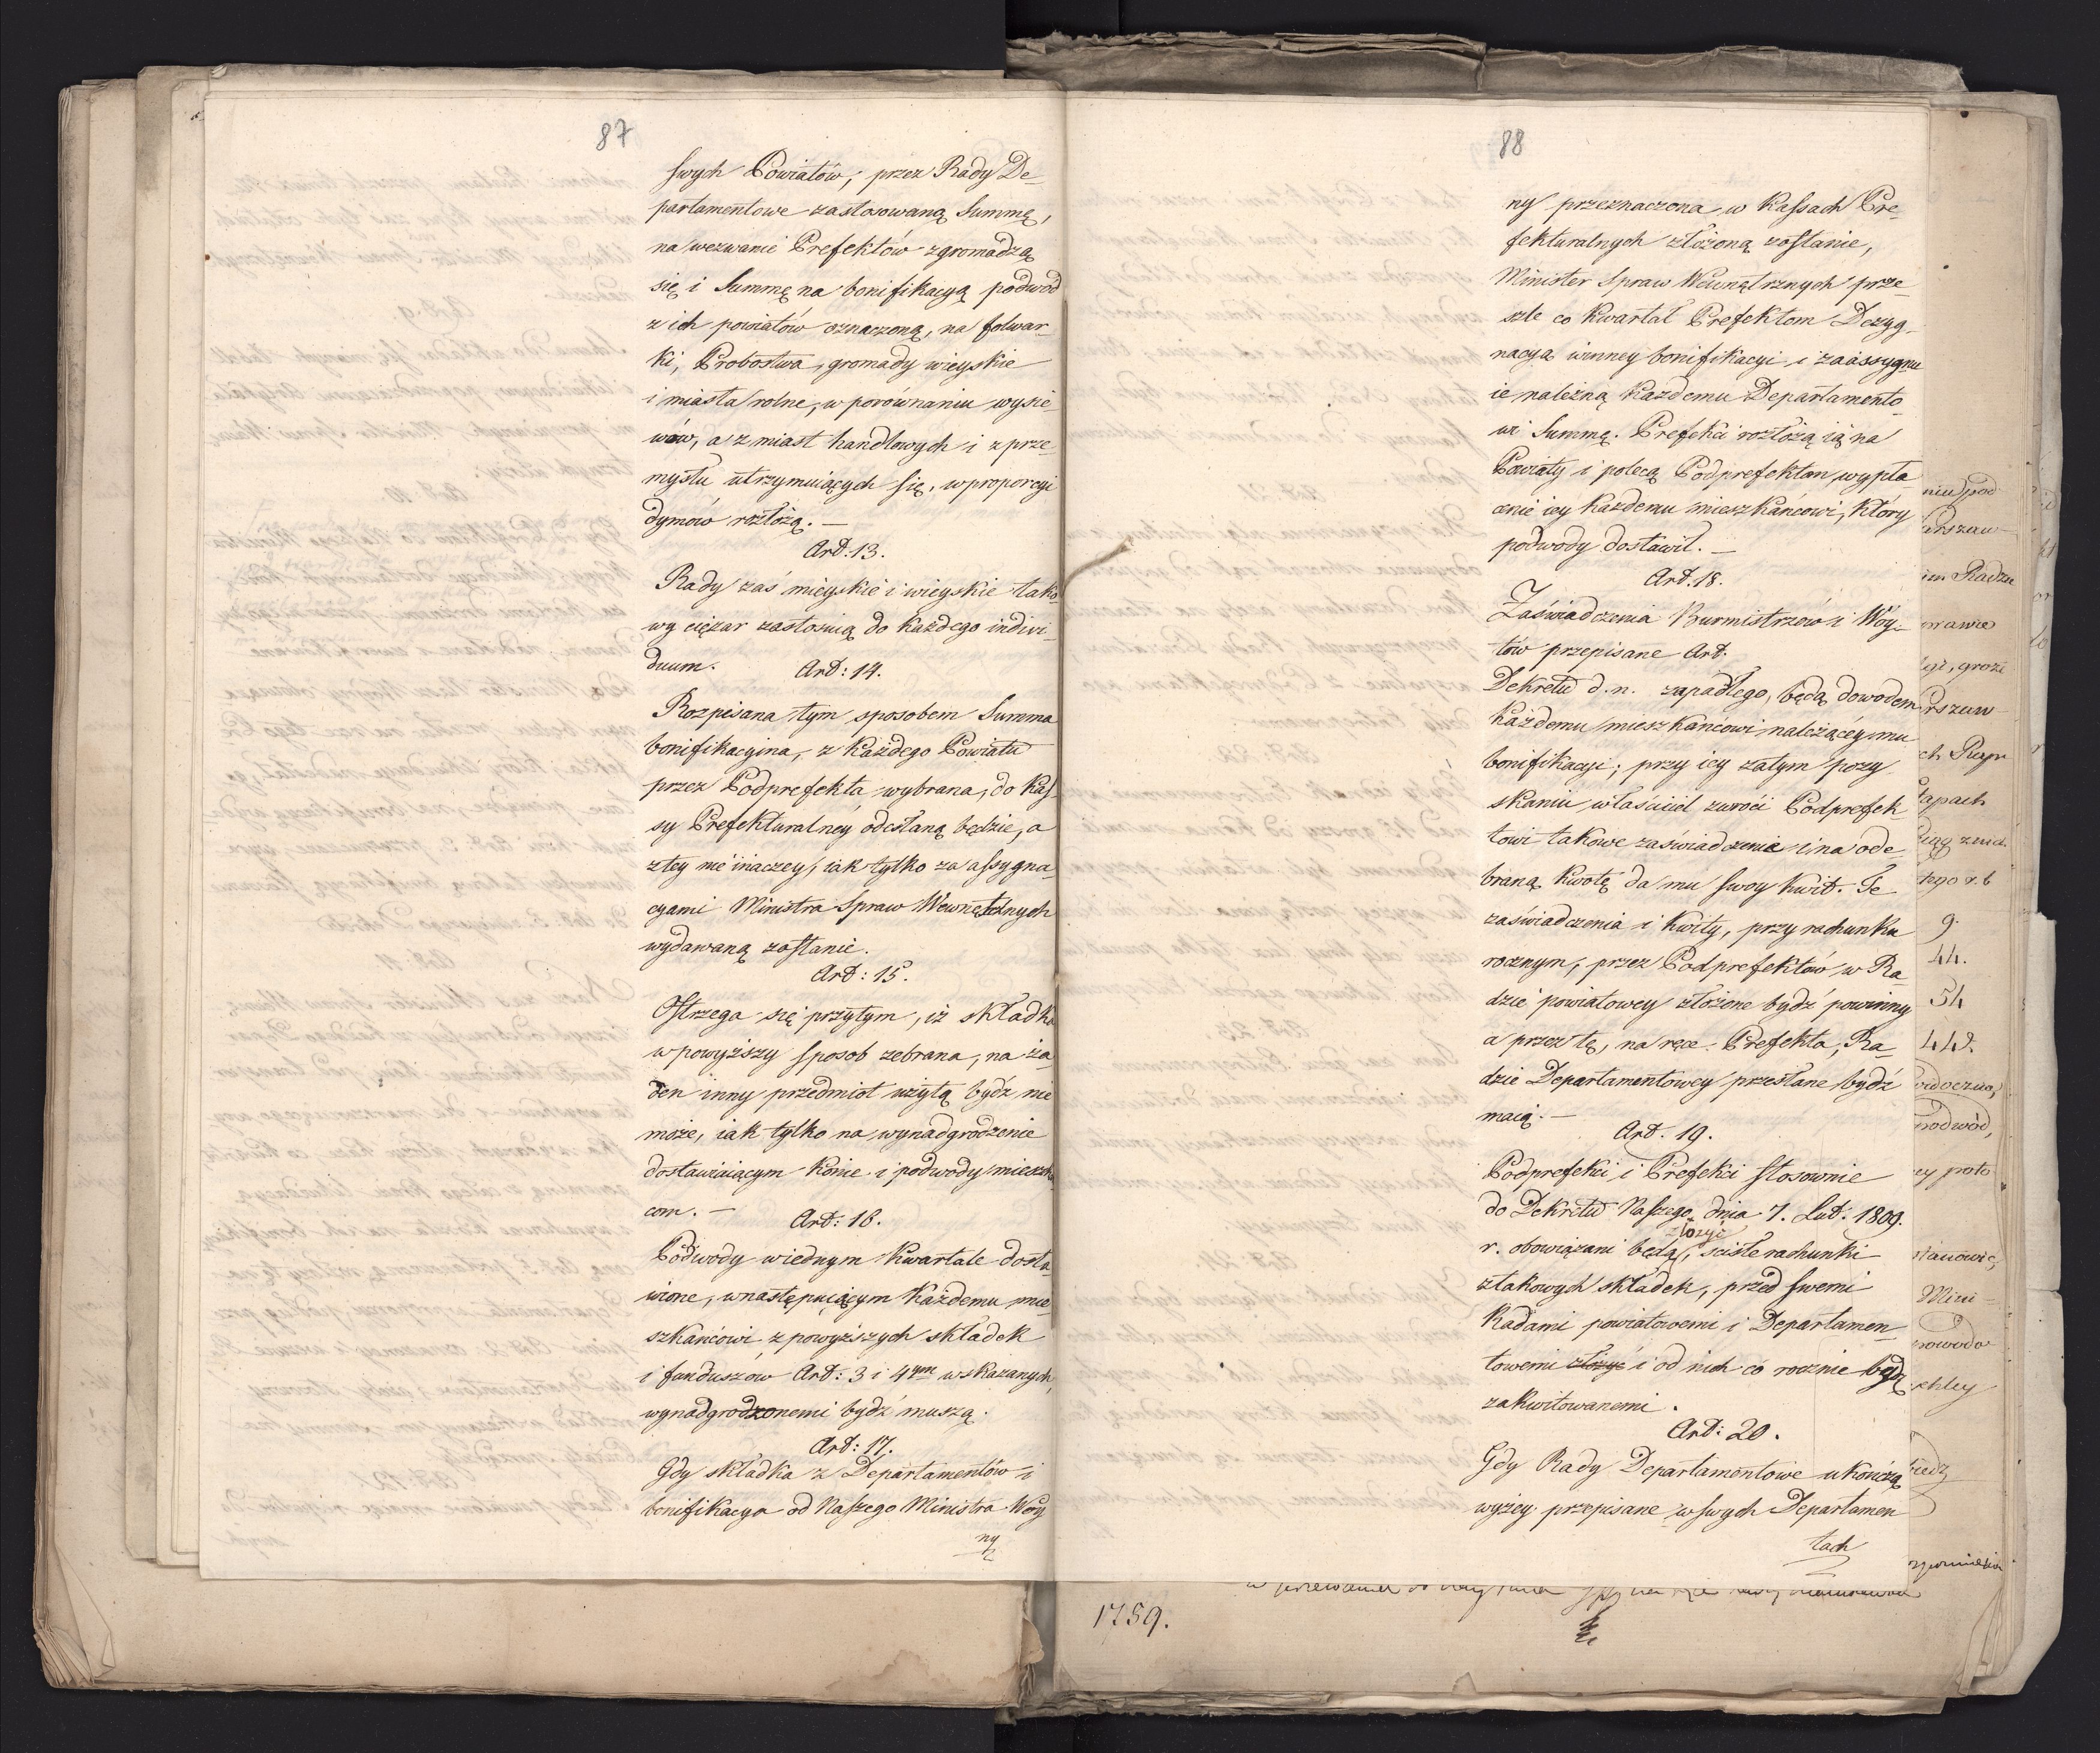 87
swych Powiatów, przez Rady De-
partamentowe zastosowaną Summę,
na wezwanie Prefektów zgromadzą
się i Summę na bonifikacyą podwód
z ich powiatów oznaczoną, na folwar-
ki, Probostwa, gromady wieyskie
i miasta rolne, w porównaniu wysie-
wów, a z miast handlowych i z prze-
mysłu utrzymuiących się, w proporcyi
dymów rozłożą. —
Art: 13.
Rady zaś mieyskie i wieyskie tako-
wy ciężar zastosuią do każdego indivi-
duum.
Art: 14.
Rozpisana tym sposobem Summa
bonifikacyina, z każdego Powiatu
przez Podprefekta wybrana, do Kas-
sy Prefekturalney odesłaną będzie, a
z tey nie inaczey, iak tylko za assygna-
cyami Ministra Spraw Wewnętrznych
wydawaną zostanie.
Art: 15.
Ostrzega się przytym, iż składka
w powyższy sposob zebrana, na ża-
den inny przedmiot użytą bydź nie
może, iak tylko na wynadgrodzenie
dostawiaiącym konie i podwody mieszkań
com. —
Art: 16.
Podwody w iednym kwartale dosta-
wione, w następuiącym każdemu mie-
szkańcowi z powyższych składek
i funduszów Art: 3 i 4ym wskazanych,
wynadgrodzonemi bydź muszą.
Art: 17.
Gdy składka z Departamentów i
bonifikacya od Naszego Ministra Woy
ny
88
ny przeznaczona w Kassach Pre-
fekturalnych złożoną zostanie,
Minister Spraw Wewnątrznych prze-
szle co kwartał Prefektom Dezyg-
nacyą winney bonifikacyi i zaassygnu
ie należną każdemu Departamento-
wi Summę. Prefekci rozłożą ią na
Powiaty i polecą Podprefektom wypła-
cenie iey każdemu mieszkańcowi, który
podwody dostawił. —
Art. 18.
Zaświadczenia Burmistrzów i Wóy-
tów przepisane Art.
Dekretu d. n. zapadłego, będą dowodem
każdemu mieszkańcowi należącéy mu
bonifikacyi; przy iey zatym pozy-
skaniu właściciel zwróci Podprefek-
towi takowe zaświadczenie i na ode-
braną kwotę da mu swoy kwit. Te
zaświadczenia i kwity, przy rachunku
rocznym, przez Podprefektów w Ra-
dzie powiatowey złożone bydź powinny
a przez tę, na ręce Prefekta, Ra-
dzie Departamentowey przesłane bydź
maią. —
Art. 19.
Podprefekci i Prefekci stosownie
do Dekretu Naszego dnia 7. Lut: 1809.
złożyć
r. obowiązani będą, ścisłe rachunki
z takowych składek, przed swemi
Radami powiatowemi i Departamen-
towemi złożyć i od nich co rocznie będą
zakwitowanemi.
Art: 20.
Gdy Rady Departamentowe ukończą
wyżey przepisane w swych Departamen
tach
niu pod
arszaw-
im Radzu
prawie
rszaw
ch Rapp
tapach
9.
44.
54
442.
podwód,
ey poło
Mini-
powodo
1759.